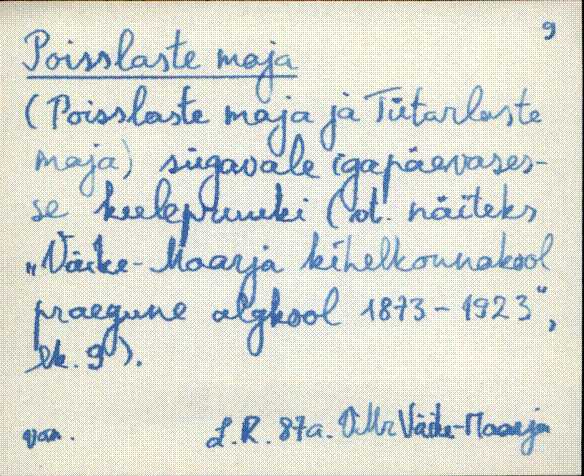 9
Poisslaste maja
(Poisslaste maja ja Tütarlaste
maja) sügavale igapäevases-
se keelepruuki (vt. näiteks
„Väike-Maarja kihelkonnakool
praegune algkool 1873-1923",
lk. 9).
van. L.R. 87a. VMr Väike-Maarja